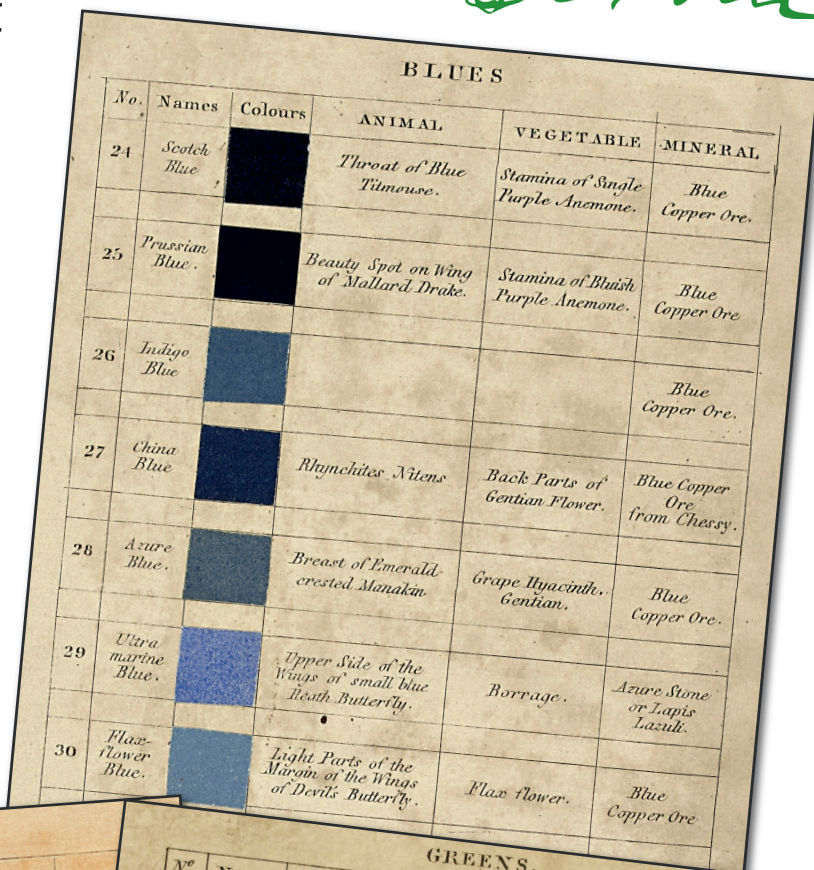 BLUES
No. Names Colours ANIMAL VEGETABLE MINERAL
24 Scotch Blue Throat of Blue Titmouse. Stamina of Single Purple Anemone. Blue Copper Ore.
25 Prussian Blue. Beauty Spot on Wing of Mallard Drake. Stamina of Bluish Purple Anemone. Blue Copper Ore
26 Indigo Blue Blue Copper Ore.
27 China Blue Rhynchites Nitens Back Parts of Gentian Flower. Blue Copper Ore from Chessy.
28 Azure Blue. Breast of Emerald-crested Manakin Grape Hyacinth. Gentian. Blue Copper Ore.
29 Ultramarine Blue. Upper Side of the Wings of small blue Heath Butterfly. Borrage. Azure Stone or Lapis Lazuli.
30 Flax-flower Blue. Light Parts of the Margin of the Wings of Devil's Butterfly. Flax flower. Blue Copper Ore
GREENS.
No